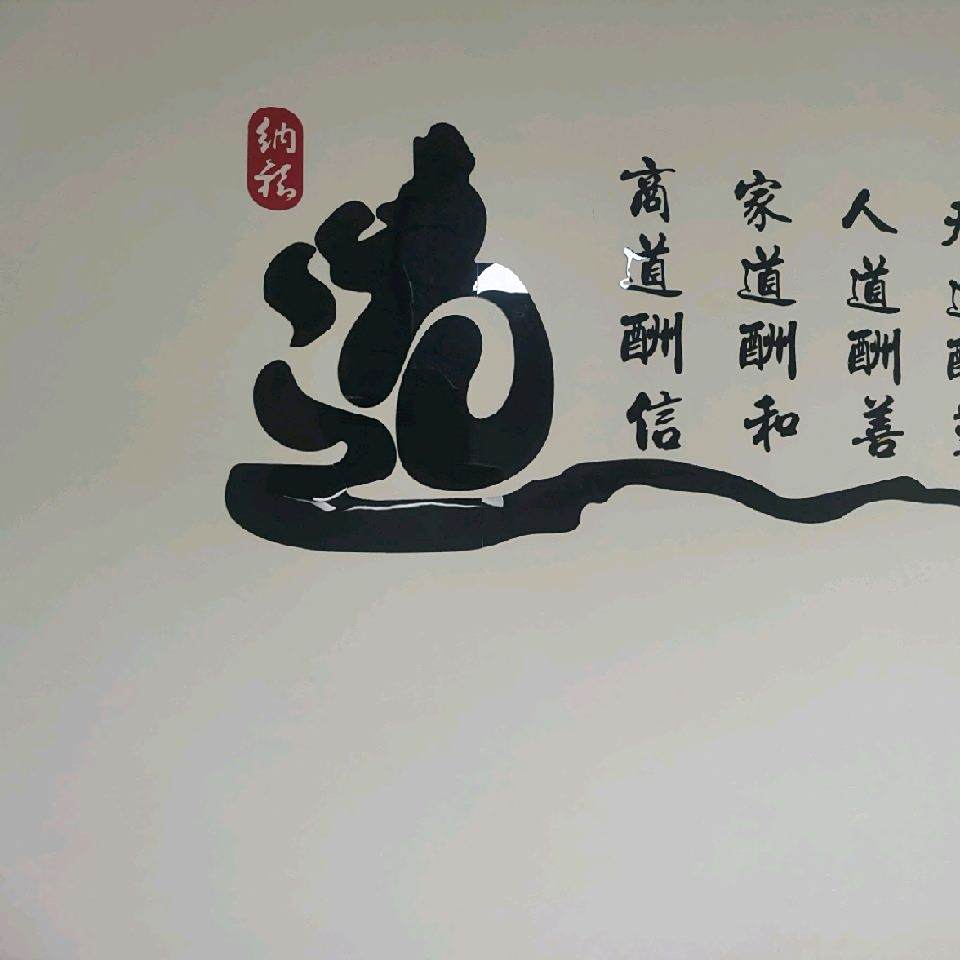 纳福
道
商道酬信
家道酬和
人道酬善